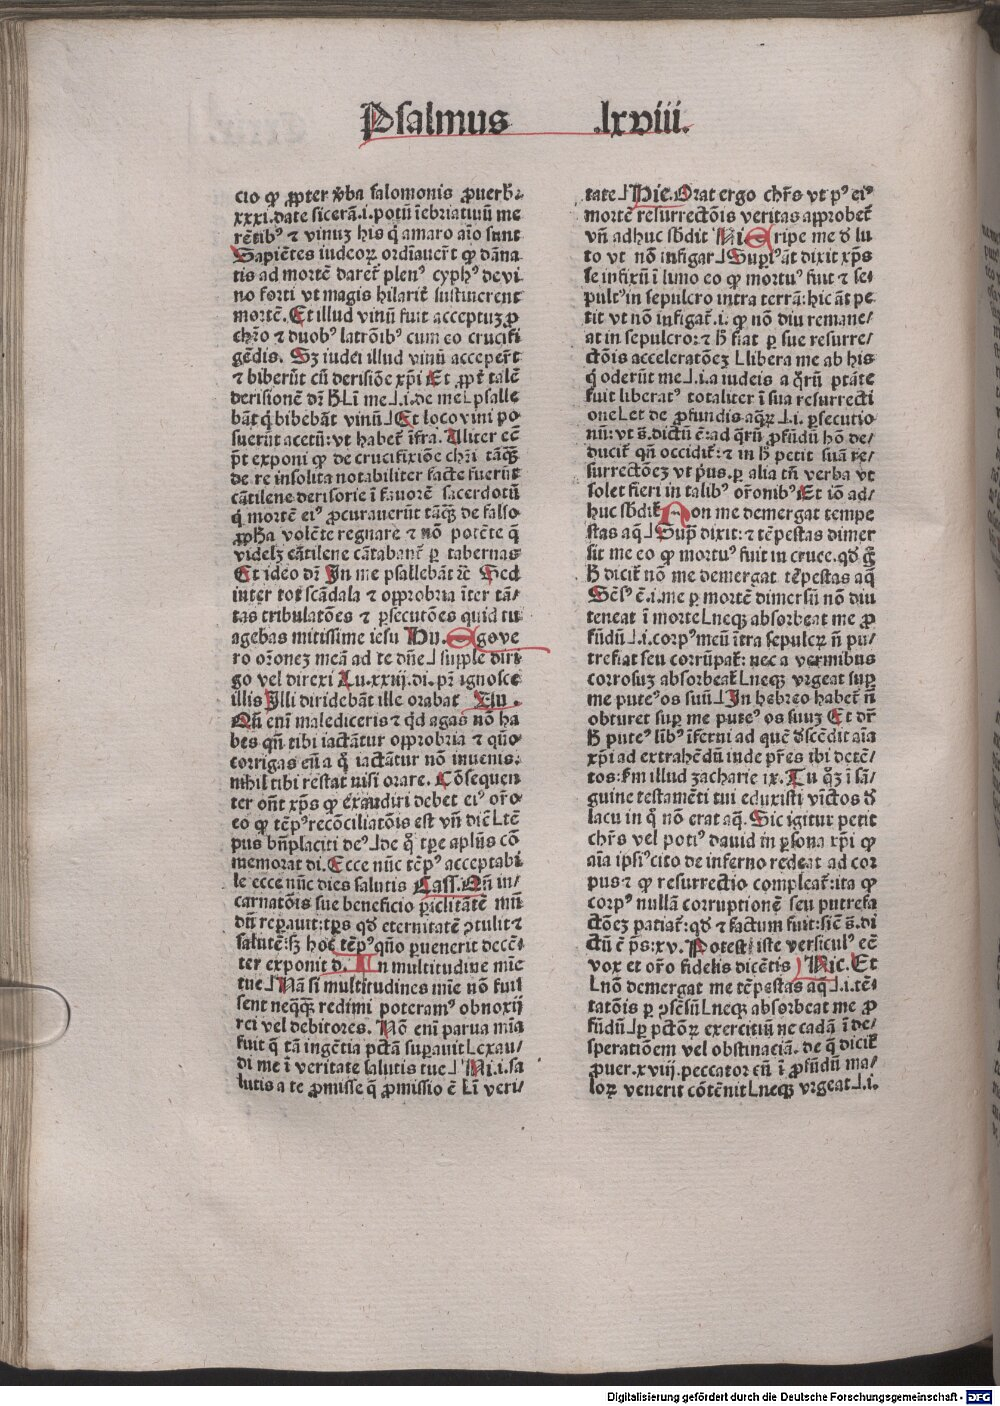 Psalmus .lxviii.
cio qꝫ ꝓpter v̓ba salomonis ꝓuerb̓.
xxxi. date sicerā .i. potū īebriatiuū me
rētibꝰ ⁊ vinuꝫ his q̄ amaro aīo sunt
Sapiētes iudeoꝝ ordīauer̄t qꝫ dāna
tis ad mortē daret̄ plenꝰ cyphꝰ de vi
no forti vt magis hilarit̄ sustinerent
mortē. Et illud vinū fuit acceptuꝫ ꝓ
chr̄o ⁊ duobꝰ latrōibꝰ cum eo crucifi
gēdis. Sꝫ iudei illud vinū acceper̄t
⁊ biberūt cū derisiōe xp̄i Et ꝓpt̄ talē
derisionē dr̄ h̄ Lī me⅃.i. de me Lpsalle
bāt q̄ bibebāt vinū⅃Et loco vini po
suerūt acetū: vt habet̄ īfra. Aliter eē
p̄t exponi qꝫ de crucifixiōe chr̄i tāꝙ̄
de re insolita notabiliter facte fuerūt
cātilene derisorie ī fauorē sacerdotū
q̄ mortē eiꝰ ꝓcurauerūt tāꝙ̄ de falso
ꝓph̄a volēte regnare ⁊ nō potēte q̄
videlꝫ cātilene cātabant̄ ꝑ tabernas
Et ideo dr̄ In me psallebāt ⁊c̄ Sed
inter tot scādala ⁊ opprobria īter tā/
tas tribulatōes ⁊ ꝑsecutōes quid tu
agebas mitissime iesu Hu. Ego ve
ro or̄oneꝫ meā ad te dn̄e⅃supple diri
go vel direxi Lu. xxiij. di. pr̄ ignosce
illis Illi diridebāt ille orabat Eiu.
Qn̄ enī malediceris ⁊ qd̓ agas nō ha
bes qn̄ tibi iactātur opprobria ⁊ quō
corrigas eū a q̊ iactātur nō inuenis:
nihil tibi restat nisi orare. Cōsequen
ter on̄t xp̄s qꝫ exaudiri debet eiꝰ or̄o
eo qꝫ tēpꝰ recōciliatōis est vn̄ dicē Ltē
pus bn̄placiti deꝰ⅃de q̊ tp̄e apl̄us cō
memorat di. Ecce nūc tēpꝰ acceptabi
le ecce nūc dies salutis Cass. Qn̄ in/
carnatōis sue beneficio ꝑiclitātē mū
dū reparuit: tp̄s qd̓ eternitatē ꝯtulit ⁊
salutē: sꝫ hoc tēpꝰ quō ꝑuenerit decē/
ter exponit d. In multitudine mīe
tue⅃Nā si multitudines mīe nō fuis
sent neqꝙ̄ redimi poteramꝰ obnoxij
rei vel debitores. Nō enī parua mīa
fuit q̄ tā ingētia pctā suꝑauit Lexau/
di me ī veritate salutis tue⅃Ni. i. sa
lutis a te ꝓmisse q̄ ꝓmissio ē Lī veri/
tate⅃Hie. Orat ergo chr̄s vt pꝰ eiꝰ
mortē resurrectōis veritas approbet̄
vn̄ adhuc sb̄dit Ni Eripe me d̓ lu
to vt nō infigar⅃Supꝰ āt dixit xp̄s
se infixū ī limo eo qꝫ mortuꝰ fuit ⁊ se/
pultꝰ in sepulcro intra terrā: hic āt pe
tit vt nō infigat̄ .i. qꝫ nō diu remane/
at in sepulcro: ⁊ h̄ fiat ꝑ sue resurre/
ctōis acceleratōeꝫ Llibera me ab his
q̄ oderūt me⅃.i. a iudeis a q̊rū ptāte
fuit liberatꝰ totaliter ī sua resurrecti
one Let de ꝓfundis aqꝝ⅃.i. ꝑsecutio
nū: vt s̄. dictū ē: ad q̊rū ꝓfūdū hō de/
ducit̄ qn̄ occidit̄: ⁊ in h̄ petit suā re/
surrectōeꝫ vt pꝰus. ꝑ alia tn̄ verba vt
solet fieri in talibꝰ or̄onibꝰ Et iō ad/
huc sb̄dit̄ Non me demergat tempe
stas aq̄⅃Sup̄ dixit: ⁊ tēpestas dimer
sit me eo qꝫ mortuꝰ fuit in cruce. qd̓ g̊
h̄ dicit̄ nō me demergat tēpestas aq̄
Sēsꝰ ē .i. me ꝑ mortē dimersū nō diu
teneat ī morte Lneqꝫ absorbeat me ꝓ
fūdū⅃.i. corpꝰ meū ītra sepulcꝝ n̄ pu/
trefiat seu corrūpat̄: nec a vermibus
corrosuꝫ absorbeat̄ Lneqꝫ vrgeat suꝑ
me puteꝰ os suū⅃In hebreo habet̄ n̄
obturet suꝑ me puteꝰ os suuꝫ Et dr̄
h̄ puteꝰ lībꝰ īferni ad quē d̓scēdit aīa
xp̄i ad extrahēdū inde pr̄es ibi detē/
tos: fm illud zacharie ix. Tu q̊ꝫ ī sā/
guine testamēti tui eduxisti vīctos d̓
lacu in q̊ nō erat aq̄. Sic igitur petit
chr̄s vel potiꝰ dauid in ꝑsona xp̄i qꝫ
aīa ipsiꝰ cito de inferno redeat ad cor
pus ⁊ qꝫ resurrectio compleat̄: ita qꝫ
corpꝰ nullā corruptionē seu putrefa
ctōeꝫ patiat̄: qd̓ ⁊ factum fuit: sic̄ s̄. di
ctū ē p̄s: xv. Potest iste versiculꝰ eē
vox et or̄o fidelis dicētis Ric. Et
Lnō demergat me tēpestas aq̄⅃.i. tē/
tatōis ꝑ ꝯsēsū Lneqꝫ absorbeat me ꝓ
fūdū⅃ꝑ pctōꝝ exercitiū ne cadā ī de/
speratiōem vel obstinaciā. de q̊ dicit̄
ꝓuer. xviij. peccator cū ī ꝓfūdū ma/
loꝝ venerit cōtēnit Lneqꝫ vrgeat⅃.i.
Digitalisierung gefördert durch die Deutsche Forschungsgemeinschaft - DFG